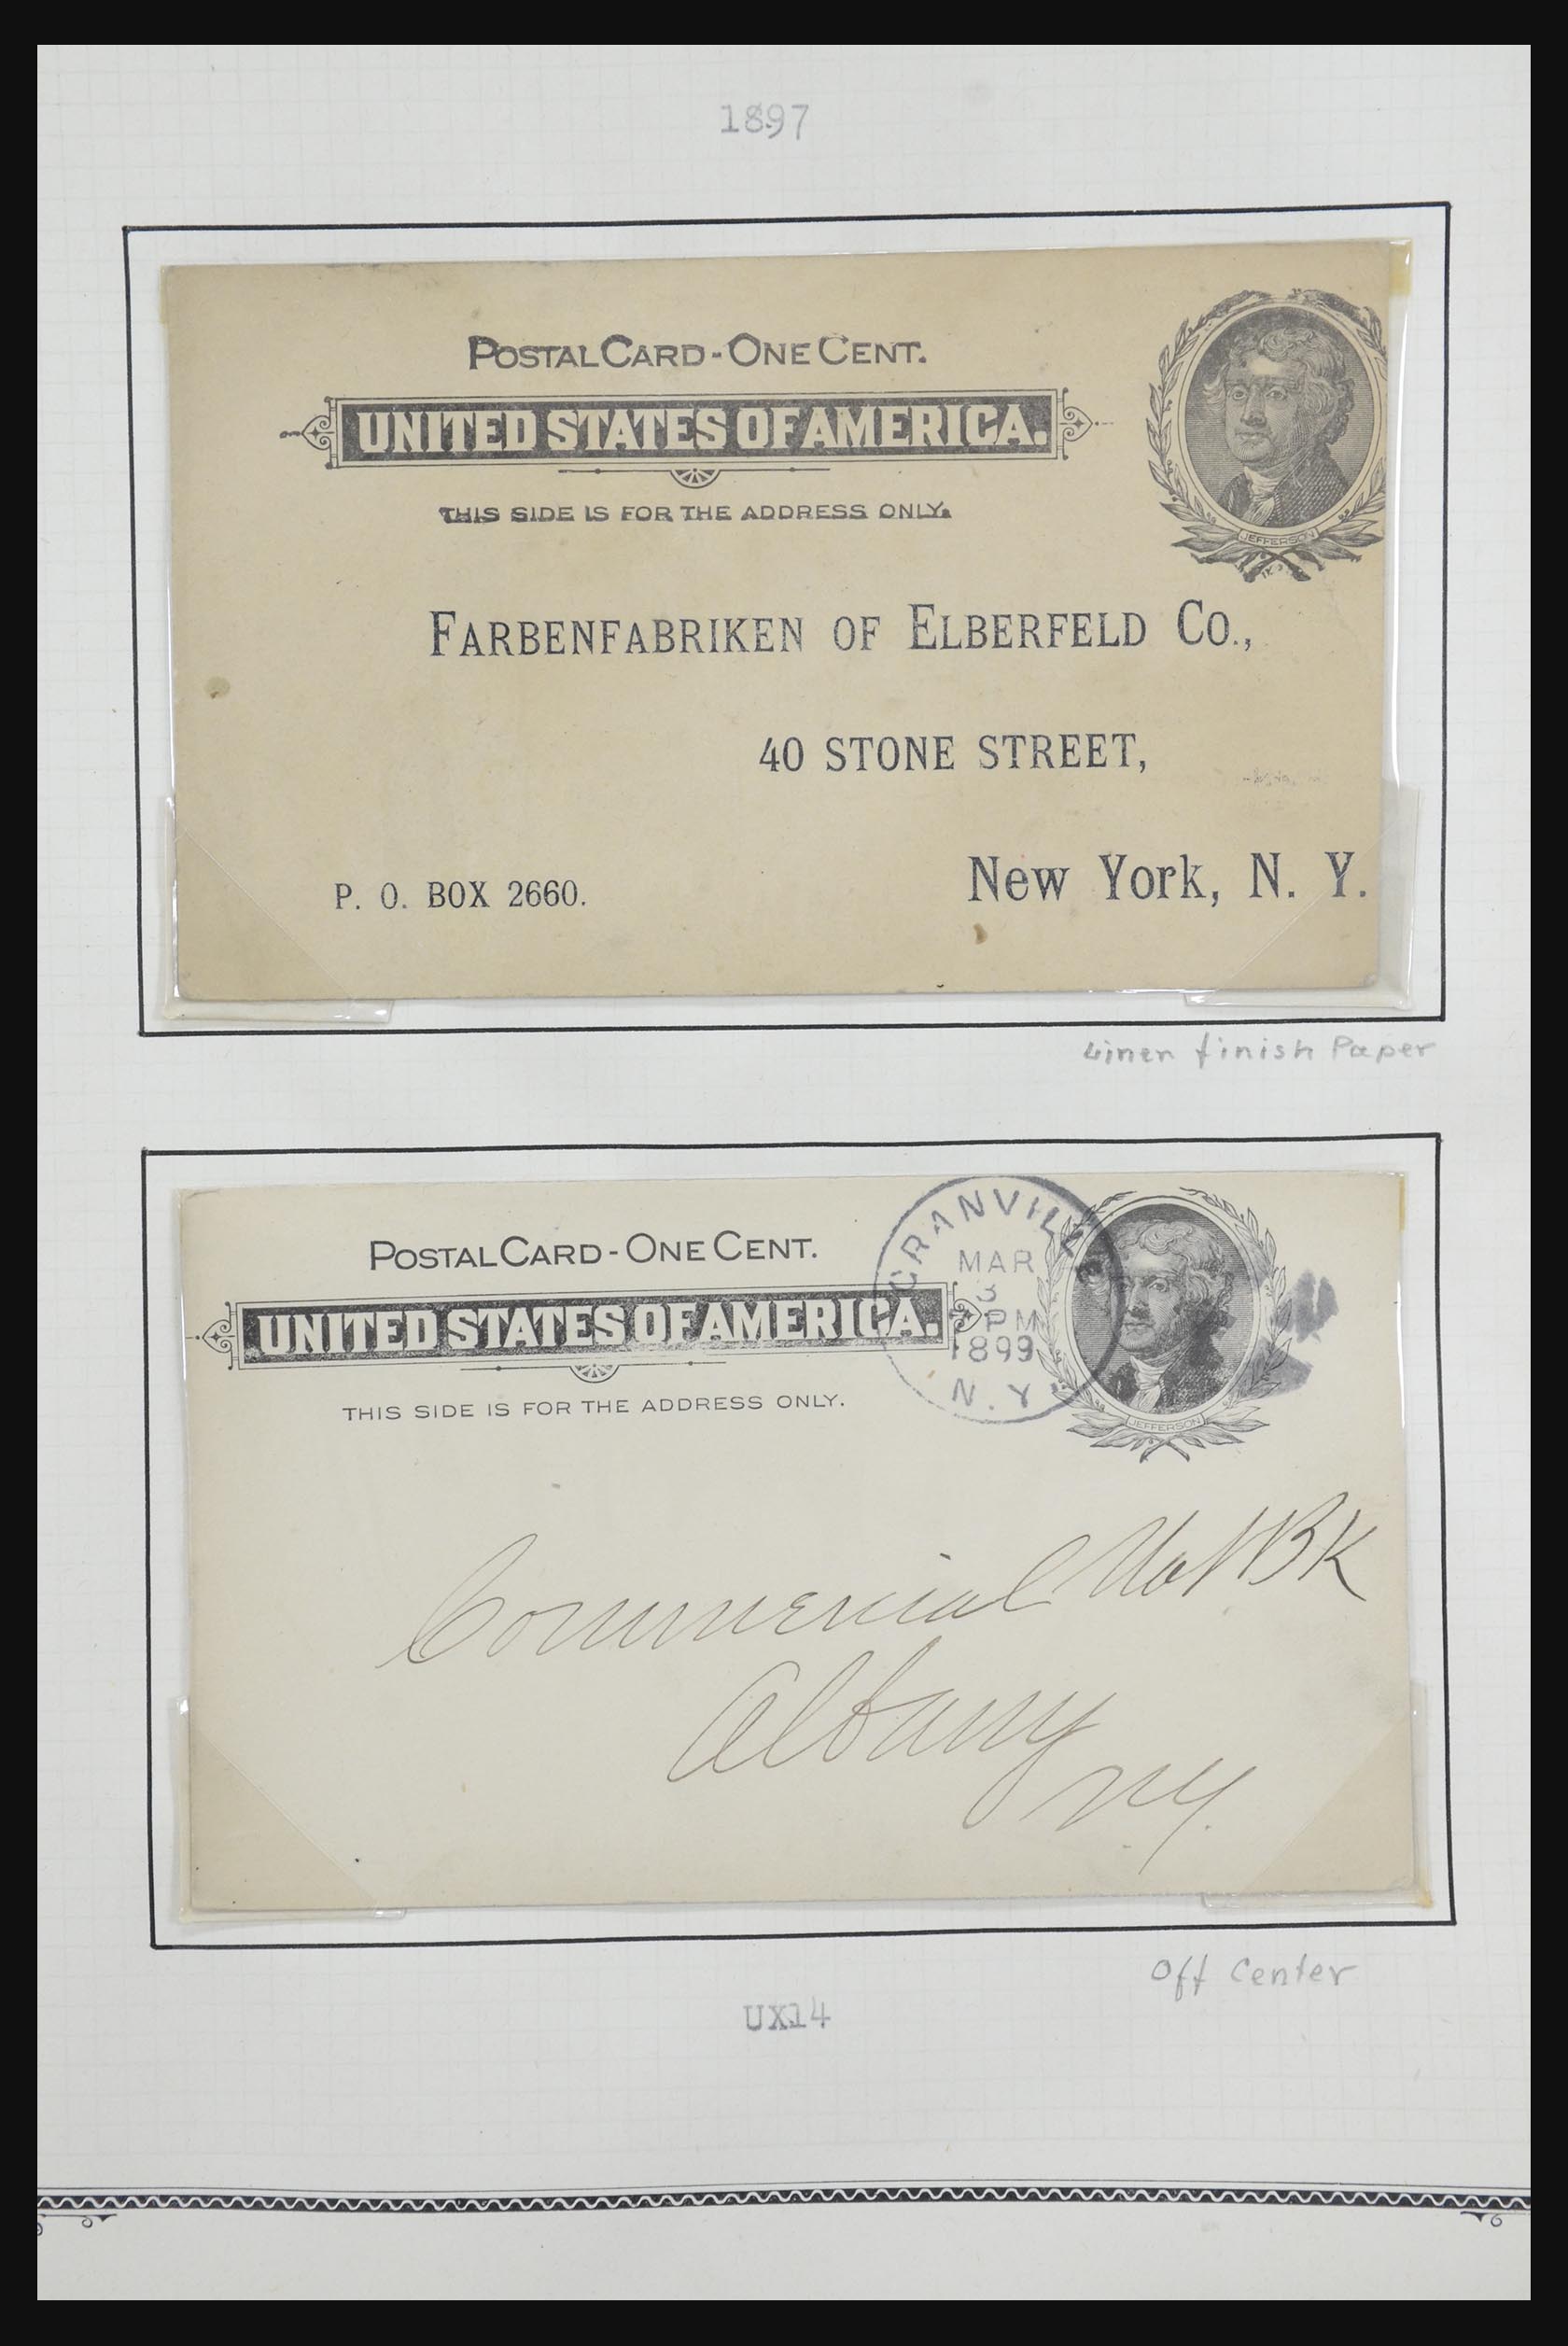 1897
POSTAL CARD - ONE CENT.
UNITED STATES OF AMERICA.
THIS SIDE IS FOR THE ADDRESS ONLY.
JEFFERSON
FARBENFABRIKEN OF ELBERFELD CO.,
40 STONE STREET,
New York, N. Y.
P. O. BOX 2660.
Linen finish Paper
POSTAL CARD - ONE CENT.
UNITED STATES OF AMERICA.
THIS SIDE IS FOR THE ADDRESS ONLY.
GRANVILLE
MAR
3
7 PM
1899
N. Y.
JEFFERSON
Commercial Nat BK
Albany
N.Y.
Off Center
UX14